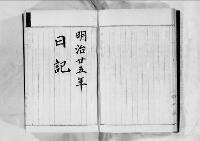 明治廿五年
日記